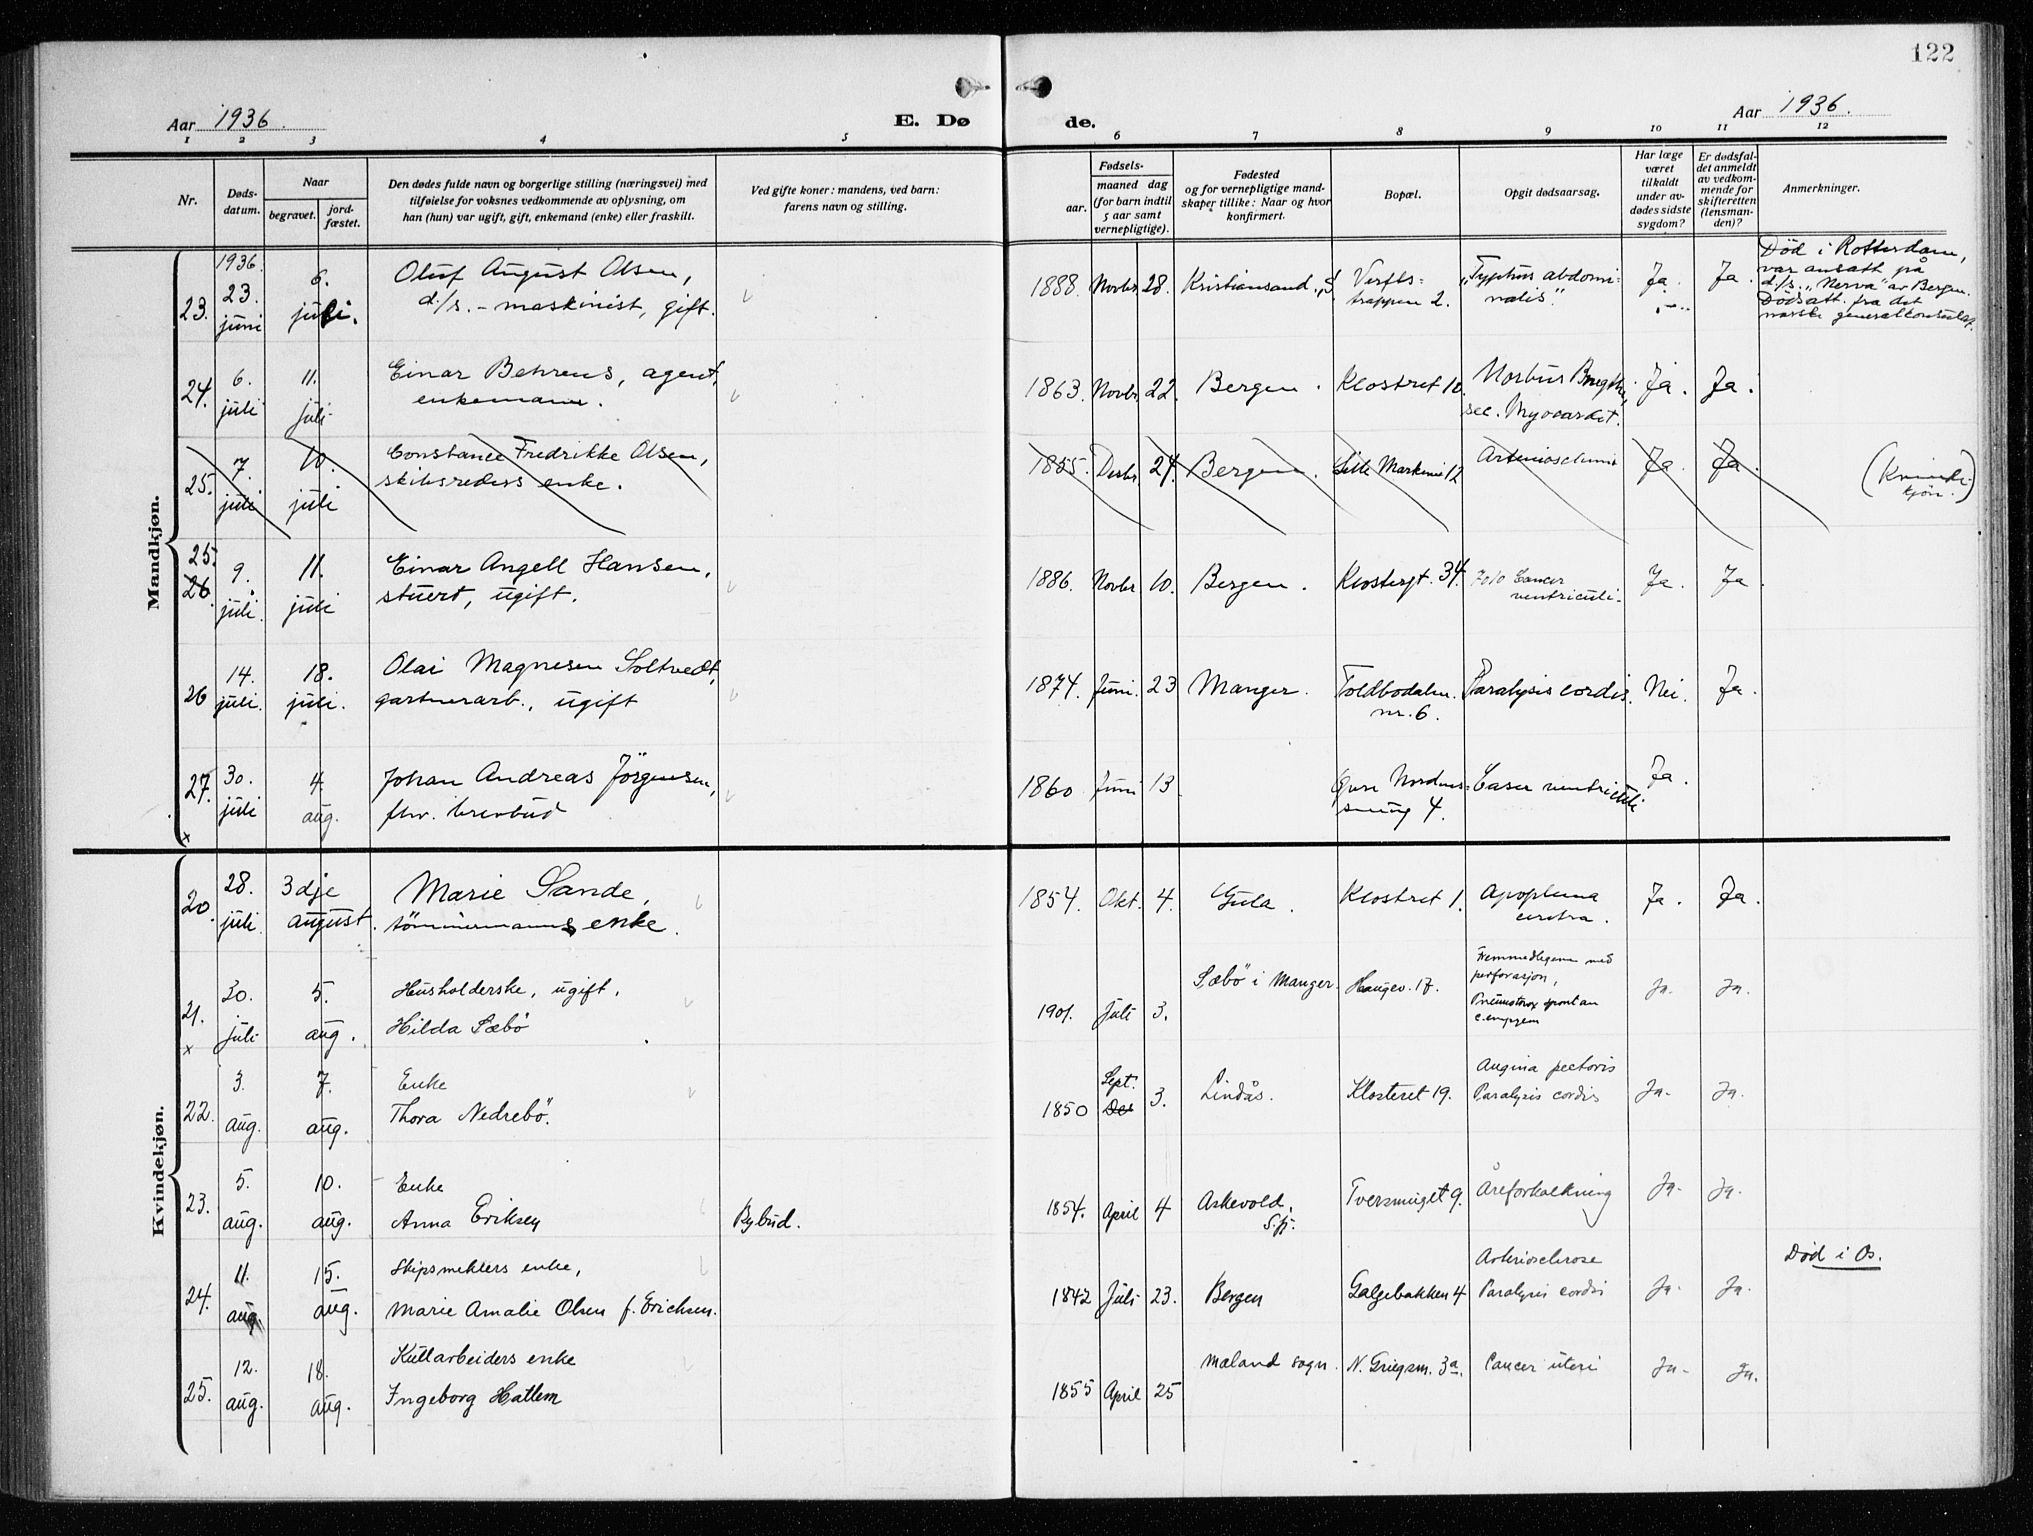 122
Aar 1936.
E. Dø de.
Aar 1936.
1 2 3 4 5 6 7 8 9 10 11 12
Nr.
Døds-
datum.
Naar
begravet.
jord-
fæstet.
Den dødes fulde navn og borgerlige stilling (næringsvei) med
tilføielse for voksnes vedkommende av oplysning, om
han (hun) var ugift, gift, enkemand (enke) eller fraskilt.
Ved gifte koner: mandens, ved barn:
farens navn og stilling.
Fødsels-
aar.
maaned dag
(for barn indtil
5 aar samt
vernepligtige).
Fødested
og for vernepligtige mand-
skaper tillike: Naar og hvor
konfirmert.
Bopæl.
Opgit dødsaarsag.
Har læge
været
tilkaldt
under av-
dødes sidste
sygdom?
Er dødsfal-
det anmeldt
av vedkom-
mende for
skifteretten
(lensman-
den)?
Anmerkninger.
Mandkjøn.
23.
1936.
23.
juni
6.
juli.
Oluf August Olsen,
d/s. - maskinist, gift.
1888. Novbr 28. Kristiansand S.
Verfts-
trappen 2.
"Typhus abdomi-
nalis."
Ja. Ja.
Død i Rotterdam,
var ansatt på
d/s. "Nerva" av Bergen.
Dødsatt. fra det
norske generalkonsulat.
24.
6.
juli
11.
juli
Einar Behrens, agent,
enkemann.
1863. Novbr 22. Bergen. Klostret 10.
Morbus
sec. Myocardit.
Ja. Ja.
25.
7.
juli
10.
juli
Constance Fredrikke Olsen,
skibsreders enke.
1855. Desbr 24. Bergen. Lille Markevei 12
Ja. Ja.
(Kvinde-
kjøn.)
25.
26
9.
juli.
11.
juli
Einar Angell Hansen,
stuert, ugift.
1886. Novbr 10. Bergen. Klostergt. 34.
Cancer
ventriculi.
Ja. Ja.
26
14.
juli.
18.
juli.
Olai Magnesen Soltvedt,
gartnerarb., ugift
1874. Juni. 23 Manger.
Toldbodalm.
nr. 6.
Paralysis cordis.
Nei. Ja.
27.
x
30.
juli
4.
aug.
Johan Andreas Jörgensen,
fhv. brevbud
1860 Juni 13
4.
ventriculi
Ja.
Kvindekjøn.
20.
28.
juli
3dje
august.
Marie Sande,
tömmermanns enke.
1854. Okt. 4. Gula. Klostret 1.
Ja. Ja.
21.
x
30.
juli
5.
aug.
Husholderske, ugift.
Hilda Sæbö
1901. Juli 3.
Sæbö i Manger. Haugev. 17.
Fremmedlegeme med
perforasjon,
Pneumotorox spontan
c. empyem
Ja. Ja.
22.
3.
aug.
7.
aug.
Enke
Thora Nedrebö.
1850
Sept.
Des
3.
Lindås. Klosteret 19.
Angina pectoris
Paralysis cordis
Ja. Ja.
23.
5.
aug.
10.
aug.
Enke
Anna Eriksen
Bybud.
1854. April 4
Askevold,
S.fj.
Tversmuget 9. Åreforkalkning
Ja. Ja.
24.
11.
aug.
15.
aug.
Skipsmeklers enke,
Marie Amalie Olsen f. Erichsen.
1842 Juli 23. Bergen Galgebakken 4
Arteriosclerose
Paralysis cordis
Ja. Ja.
Død i Os.
25.
12.
aug.
18.
aug.
Kullarbeiders enke
Ingeborg Hatlem
1855 April 25
Maland sogn. N. Griegsm. 3a. Cancer uteri
Ja. Ja.